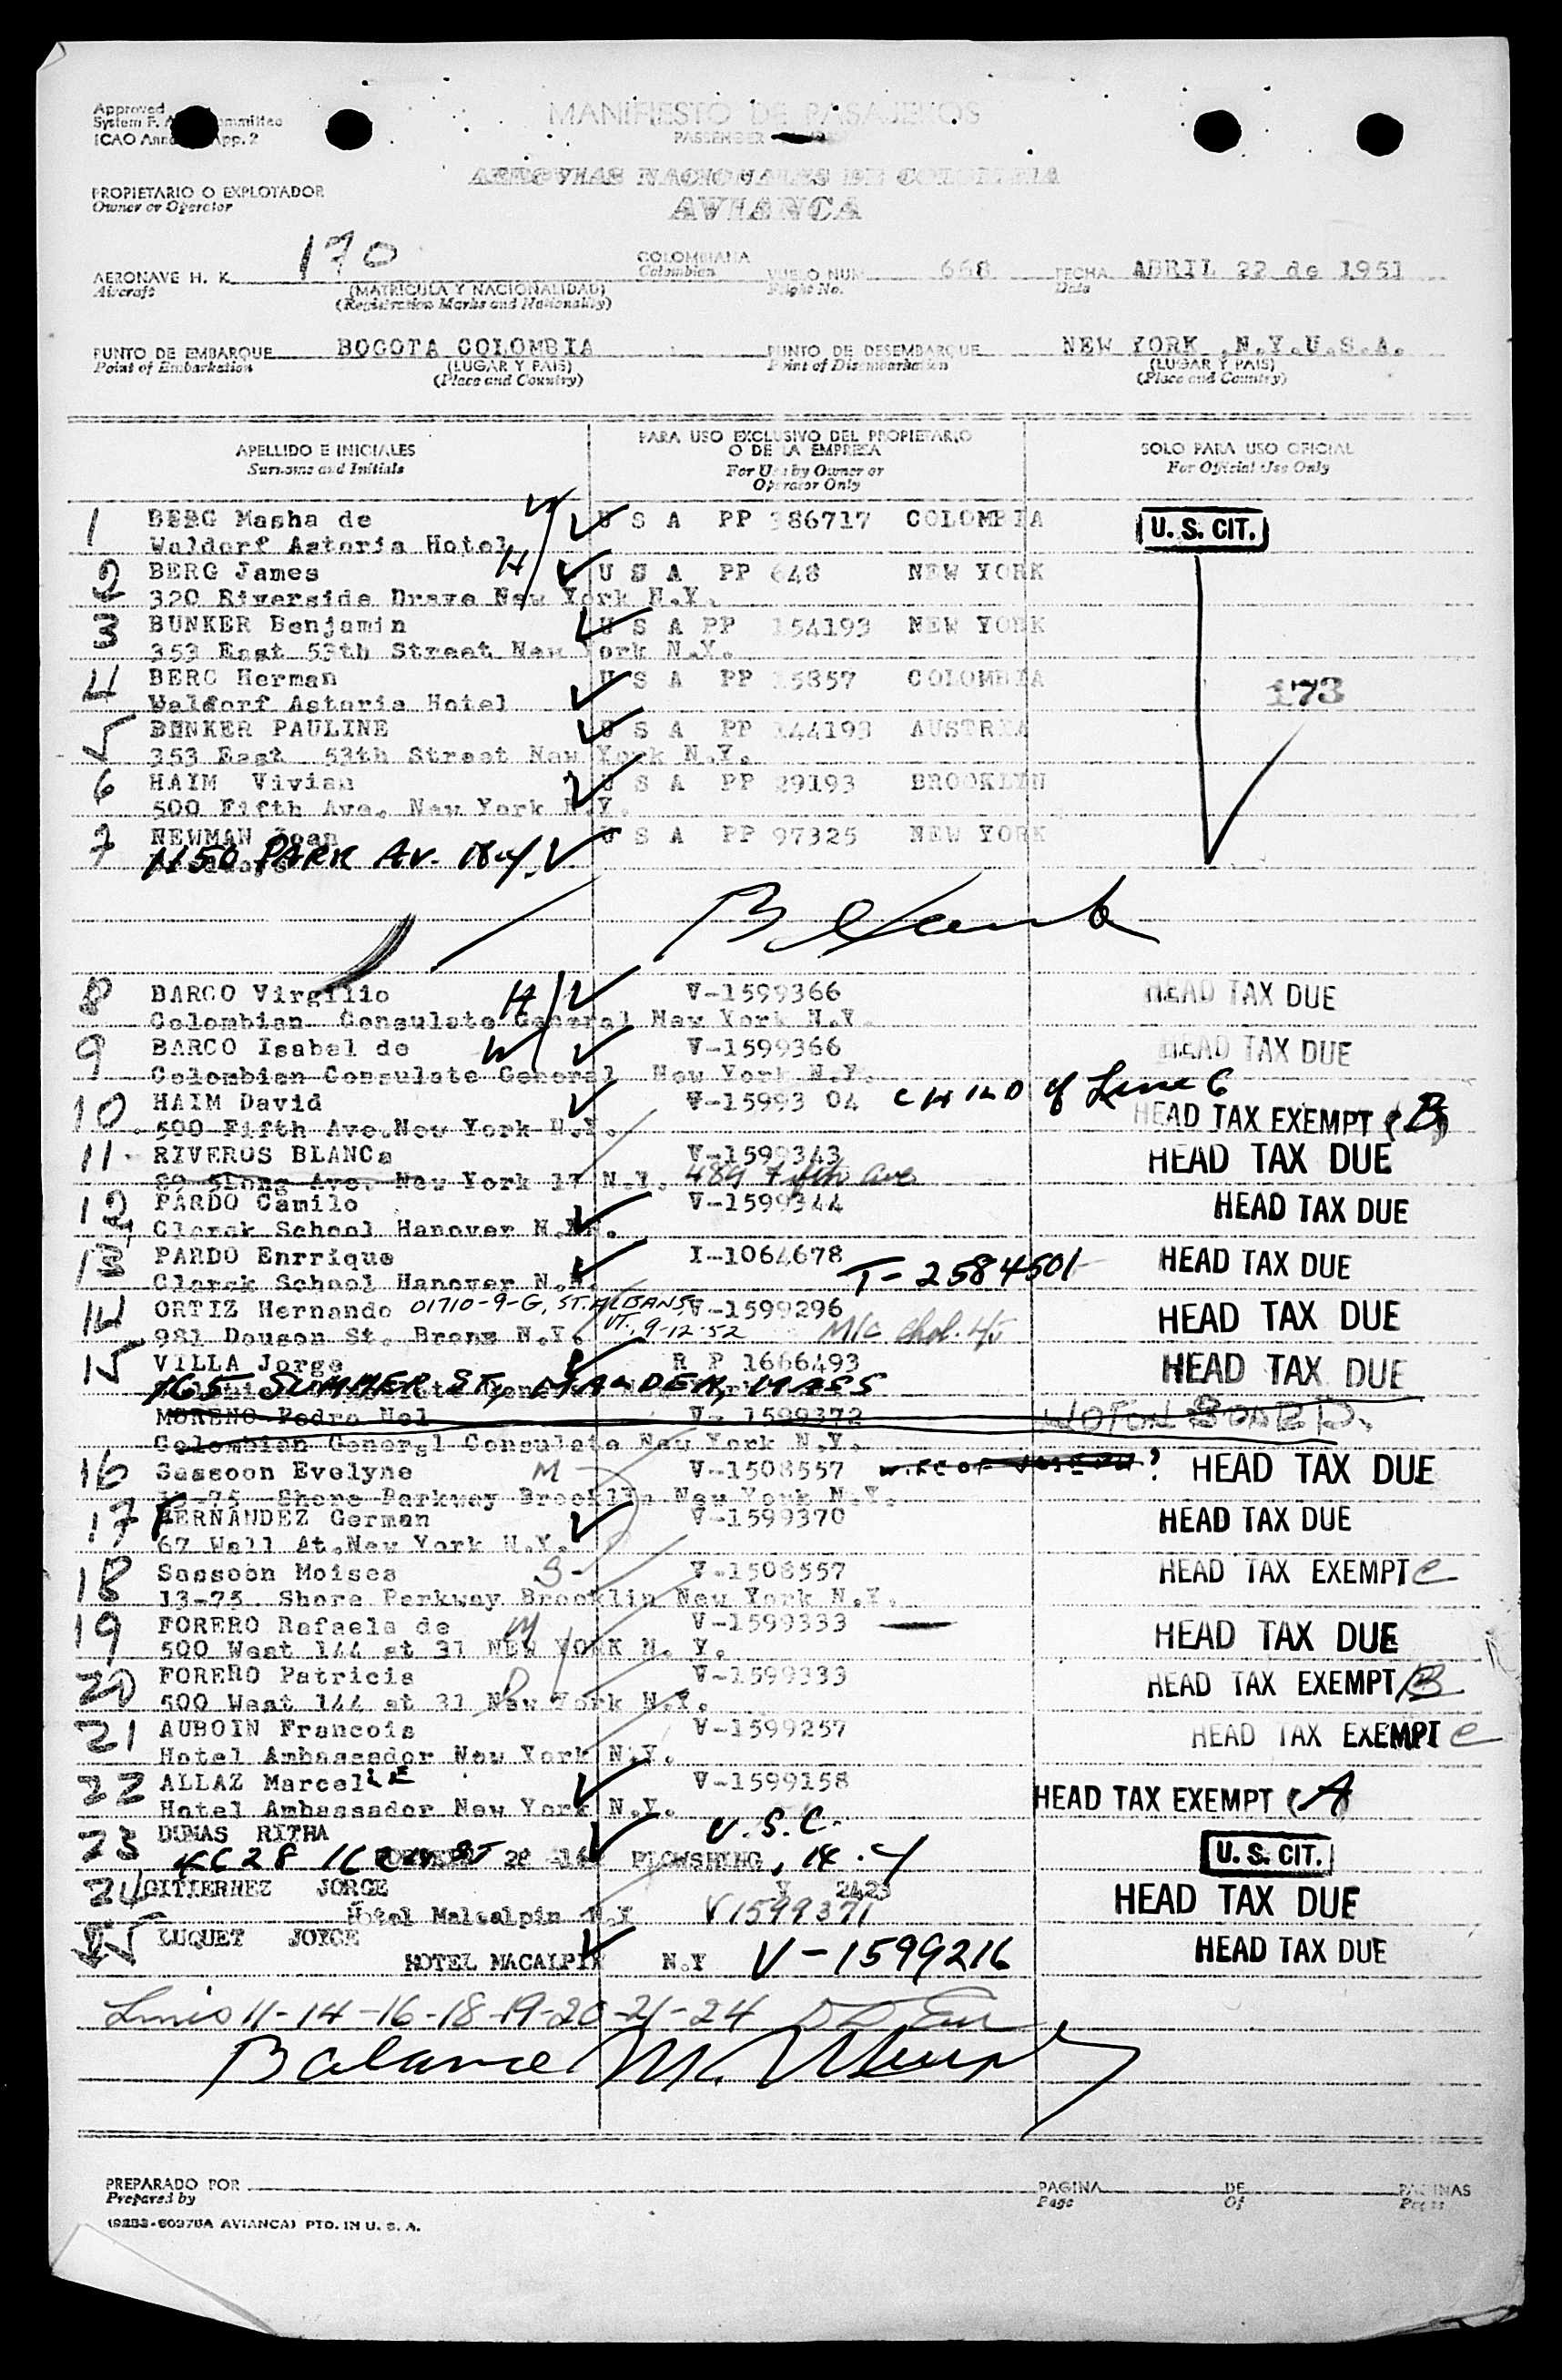 Approved
System F. A. Committee
ICAO Annex App. 2
MANIFIESTO DE PASAJEROS
PASSENGER
AEROVIAS NACIONALES DE COLOMBIA
AVIANCA
PROPIETARIO O EXPLOTADOR
Owner or Operator
AERONAVE H. K. 170 COLOMBIANA VUELO NUM. 668 FECHA ABRIL 22 de 1951
Aircraft (MATRICULA Y NACIONALIDAD) Colombian Flight No. Date
(Registration Marks and Nationality)
PUNTO DE EMBARQUE BOGOTA COLOMBIA PUNTO DE DESEMBARQUE NEW YORK ,N.Y.U.S.A.
Point of Embarkation (LUGAR Y PAIS) Point of Disembarkation (LUGAR Y PAIS)
(Place and Country) (Place and Country)
APELLIDO E INICIALES PARA USO EXCLUSIVO DEL PROPIETARIO O DE LA EMPRESA SOLO PARA USO OFICIAL
Surname and Initials For Use by Owner or Operator Only For Official Use Only
1 BERG Masha de W U S A PP 386717 COLOMBIA U. S. CIT.
Waldorf Astoria Hotel
2 BERG James H U S A PP 648 NEW YORK
320 Riverside Drave New York N.Y.
3 BUNKER Benjamin U S A PP 154193 NEW YORK
353 East 53th Street New York N.Y.
4 BERG Herman U S A PP 15857 COLOMBIA 173
Waldorf Astoria Hotel
5 BENKER PAULINE U S A PP 144193 AUSTRIA
353 East 53th Street New York N.Y.
6 HAIM Vivian U S A PP 29193 BROOKLYN
500 Fifth Ave. New York N.Y.
7 NEWMAN Joan U S A PP 97325 NEW YORK
1150 PARK AV. N.Y.
8 BARCO Virgilio H V-1599366 HEAD TAX DUE
Colombian Consulate General New York N.Y.
9 BARCO Isabel de W V-1599366 HEAD TAX DUE
Colombian Consulate General New York N.Y.
10 HAIM David V-15993 04 CHILD of Line 6 HEAD TAX EXEMPT (B)
500 Fifth Ave.New York N.Y.
11 RIVEROS BLANCa V-1599343 HEAD TAX DUE
Ave. New York 17 N.Y. 489 Fifth ave
12 PARDO Camilo V-1599344 HEAD TAX DUE
Clarck School Hanover N.H.
13 PARDO Enrrique I-1064678 T-2584501 HEAD TAX DUE
Clarck School Hanover N.H.
14 ORTIZ Hernando 01710-9-G, ST. ALBANS, V-1599296 HEAD TAX DUE
981 Douson St. Bronx N.Y. VT., 9-12-52
15 VILLA Jorge R P 1666493 HEAD TAX DUE
165 SUMMER ST, MALDEN, MASS
MORENO Pedro Nel V- 1599372 NOT ON BOARD.
Colombian General Consulate New York N.Y.
16 Sassoon Evelyne M V-1508557 WIFE OF JOSEPH? HEAD TAX DUE
13-75 Shore Parkway Brooklin New York N.Y.
17 FERNANDEZ German V-1599370 HEAD TAX DUE
67 Wall At.New York N.Y.
18 Sassoon Moises S- V-1508557 HEAD TAX EXEMPT C
13-75 Shore Parkway Brooklin New York N.Y.
19 FORERO Rafaela de M V-1599333 HEAD TAX DUE
500 West 144 st 31 NEW YORK N. Y.
20 FORERO Patricia D V-1599333 HEAD TAX EXEMPT B
500 West 144 st 31 New York N.Y.
21 AUBOIN Francois V-1599257 HEAD TAX EXEMPT C
Hotel Ambassador New York N.Y.
22 ALLAZ MarcelLE V-1599158 HEAD TAX EXEMPT (A)
Hotel Ambassador New York N.Y.
23 DUMAS RITHA U.S.C. U. S. CIT.
FLOWSHING, N.Y
24 GITIERREZ JORGE V 2423 HEAD TAX DUE
Hotel Malcalpin N.Y V1599371
25 LUQUET JOYCE HEAD TAX DUE
HOTEL MACALPIN N.Y V-1599216
Lines 11-14-16-18-19-20-21-24
Balance M. Murphy
PREPARADO POR PAGINA DE PAGINAS
Prepared by Page Of Pages
(9283-60978A AVIANCA) PTD. IN U. S. A.